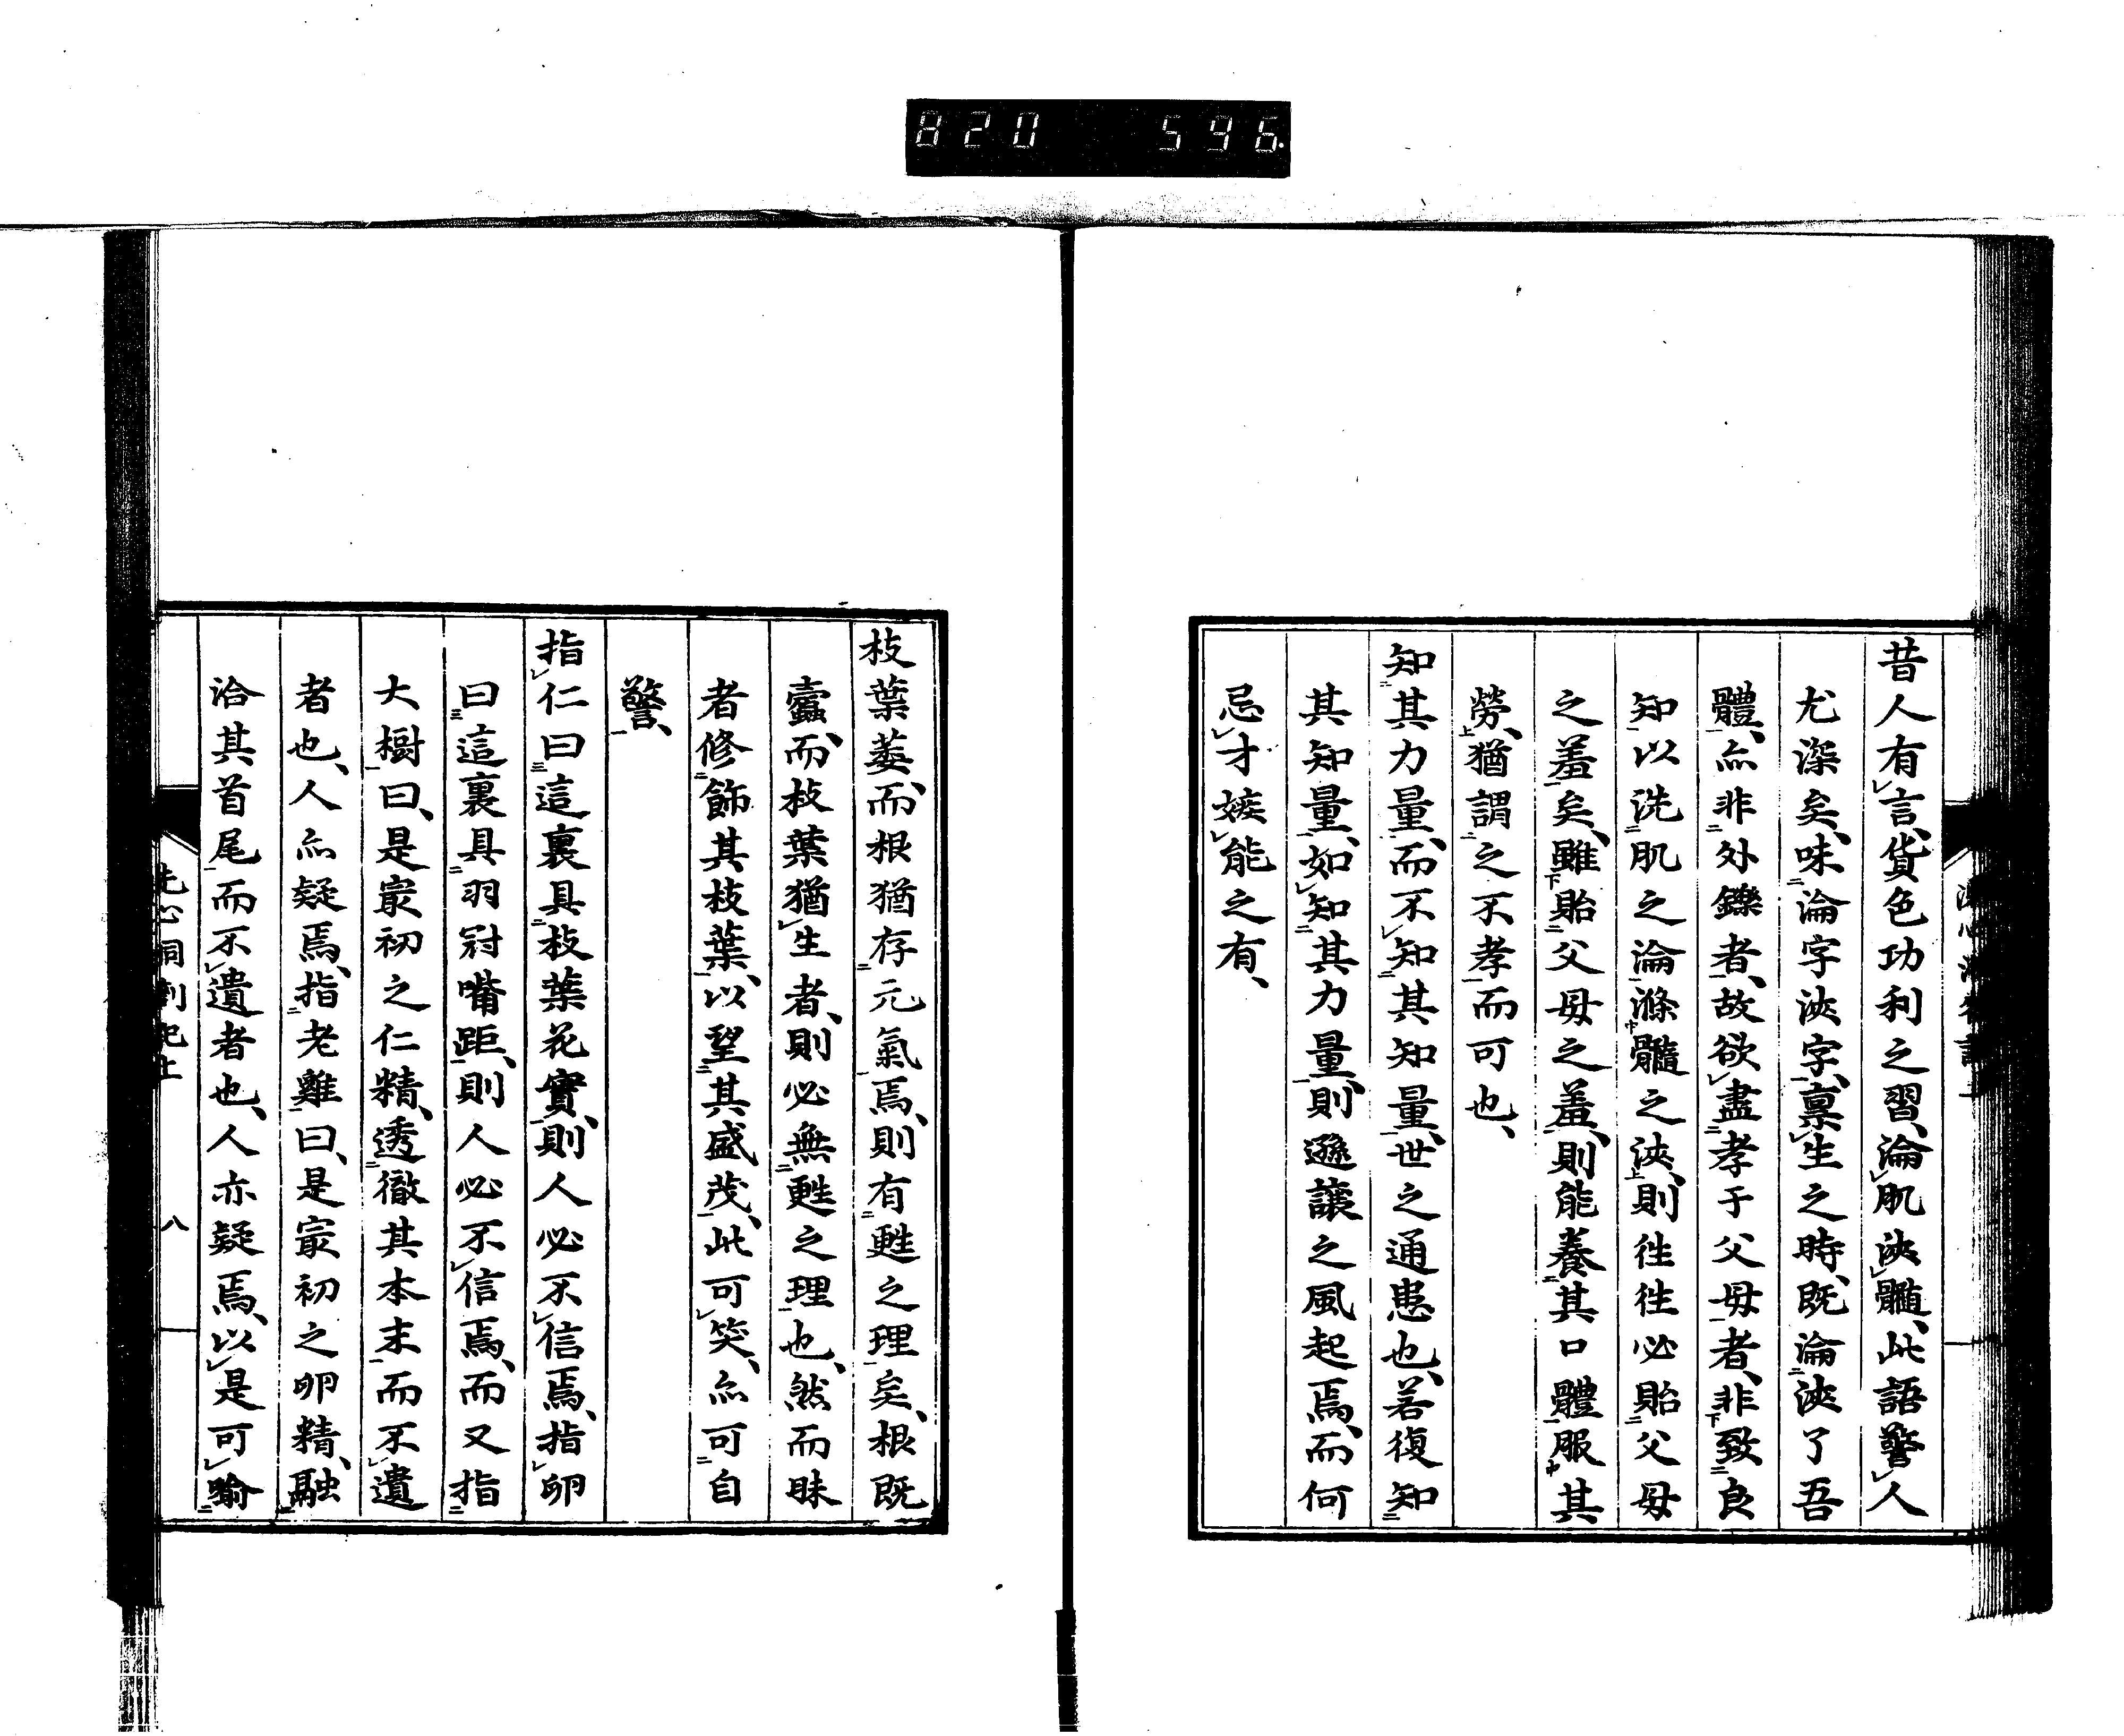 820 596
昔人有言、貨色功利之習、淪肌浹髓、此語警人
尤深矣、味淪字浹字、稟生之時、既淪浹了吾
體、亦非外鑠者、故欲盡孝于父母者、非致良
知以洗肌之淪滌髓之浹、則徃徃必貽父母
之羞矣、雖貽父母之羞、則能養其口體服其
勞、猶謂之不孝而可也、
知其力量、而不知其知量、世之通患也、若復知
其知量、如知其力量、則遜讓之風起焉、而何
忌才嫉能之有、
枝葉萎、而根猶存元氣焉、則有甦之理矣、根既
蠧、而枝葉猶生者、則必無甦之理也、然而昧
者修飾其枝葉、以望其盛茂、此可笑、亦可自
警、
指仁曰這裏具枝葉花實、則人必不信焉、指卵
曰這裏具羽冠嘴距、則人必不信焉、而又指
大樹曰、是㝡初之仁精、透徹其本末而不遺
者也、人亦疑焉、指老雞曰、是㝡初之卵精、融
洽其首尾而不遺者也、人亦疑焉、以是可喻
洗心洞劄記上
八